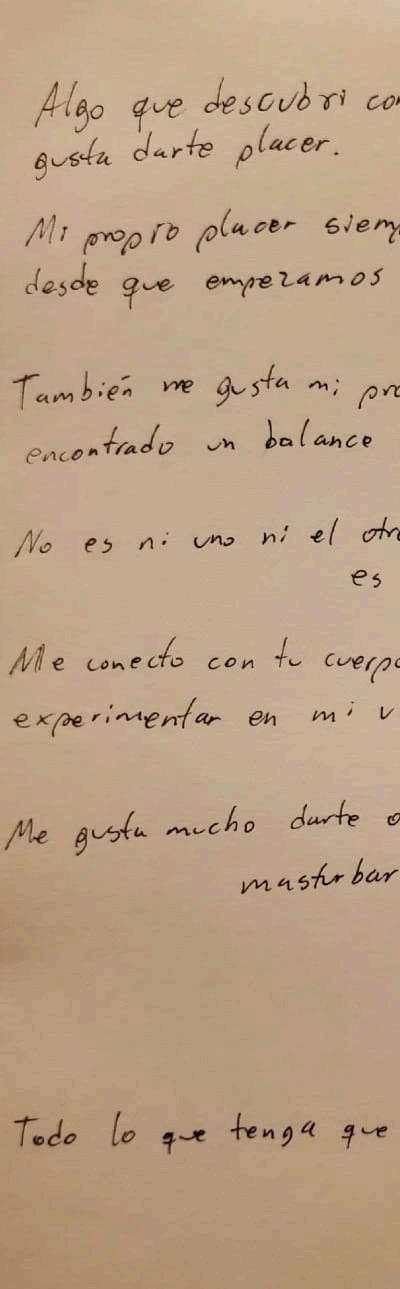 Algo que descubri con
gusta darte placer.
Mi propio placer siem
desde que empezamos
También me gusta mi pro
encontrado un balance
No es ni uno ni el otro
es
Me conecto con tu cuerpo
experimentar en mi v
Me gusta mucho darte o
masturbar
Todo lo que tenga que